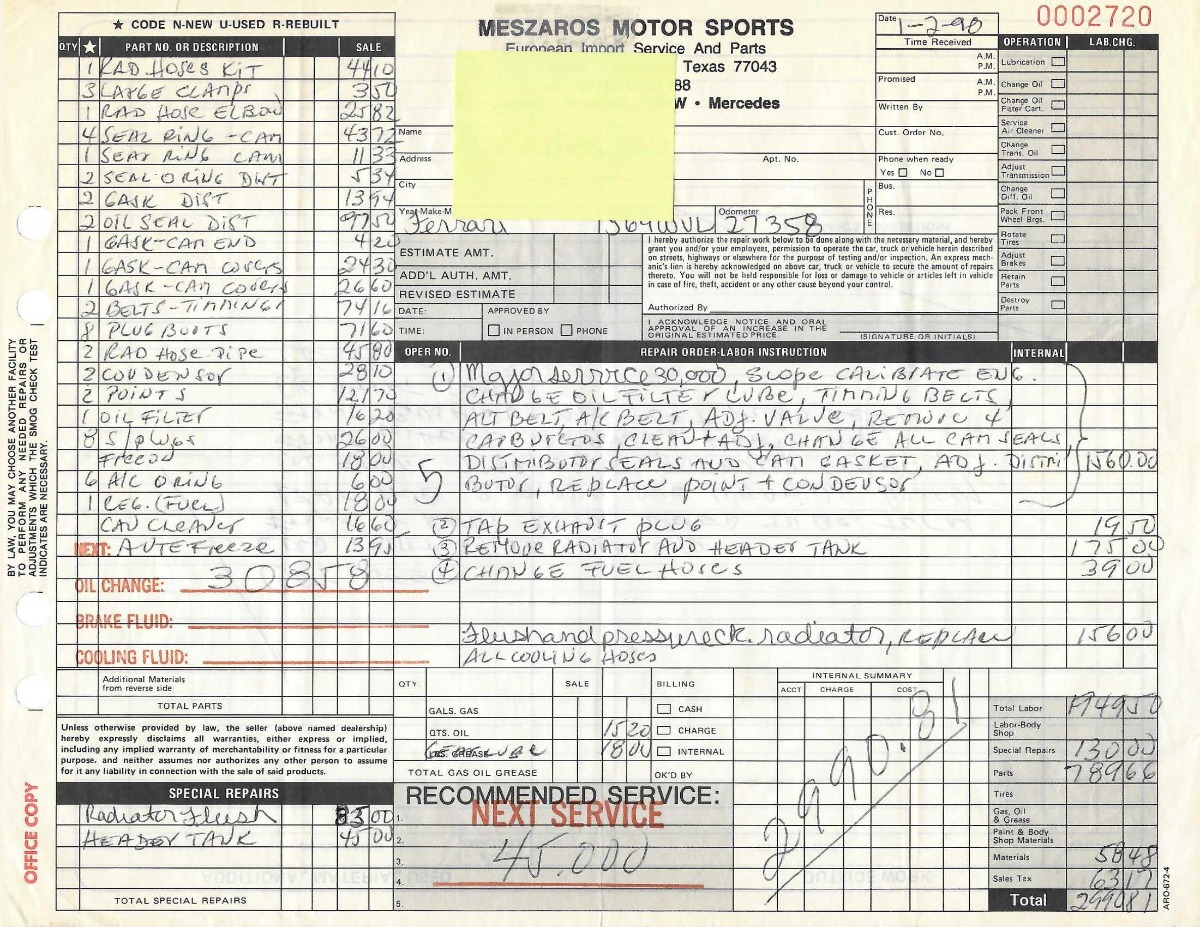 ★ CODE N-NEW U-USED R-REBUILT
QTY ★ PART NO. OR DESCRIPTION SALE
1 RAD HOSES KIT 44 10
3 LARGE CLAMPS 3 50
1 RAD HOSE ELBOW 25 82
4 SEAL RING - CAM 43 72
1 SEAL RING CAM 11 33
2 SEAL O RING DIST 5 34
2 GASK DIST 13 94
2 OIL SEAL DIST 77 50
1 GASK-CAM END 4 20
1 GASK-CAM COVERS 24 30
1 GASK-CAM COVERS 26 60
2 BELTS-TIMMING 74 16
8 PLUG BOOTS 71 60
2 RAD HOSE PIPE 45 80
2 CONDENSOR 28 10
2 POINTS 121 70
1 OIL FILTER 16 20
8 S/PLUGS 26 00
FREEON 18 00
6 A/C O RING 6 00
1 REG. (FUEL) 18 00
CAN CLEANER 16 60
NEXT: ANTEFreeze 13 95
OIL CHANGE: 30858
BRAKE FLUID:
COOLING FLUID:
Additional Materials
from reverse side
TOTAL PARTS
Unless otherwise provided by law, the seller (above named dealership)
hereby expressly disclaims all warranties, either express or implied,
including any implied warranty of merchantability or fitness for a particular
purpose, and neither assumes nor authorizes any other person to assume
for it any liability in connection with the sale of said products.
SPECIAL REPAIRS
Radiator Flush 85 00
HEADER TANK 45 00
TOTAL SPECIAL REPAIRS
BY LAW, YOU MAY CHOOSE ANOTHER FACILITY
TO PERFORM ANY NEEDED REPAIRS OR
ADJUSTMENTS WHICH THE SMOG CHECK TEST
INDICATES ARE NECESSARY.
OFFICE COPY
MESZAROS MOTOR SPORTS
European Import Service And Parts
Texas 77043
88
W • Mercedes
Name
Address Apt. No.
City
Year-Make-M
Ferrari
Odometer
27358
PHONE
Bus.
Res.
Date 1-2-90
Time Received
A.M.
P.M.
Promised
A.M.
P.M.
Written By
Cust. Order No.
Phone when ready
Yes No
0002720
OPERATION LAB.CHG.
Lubrication
Change Oil
Change Oil
Filter Cart.
Service
Air Cleaner
Change
Trans. Oil
Adjust
Transmission
Change
Diff. Oil
Pack Front
Wheel Brgs.
Rotate
Tires
Adjust
Brakes
Retain
Parts
Destroy
Parts
ESTIMATE AMT.
ADD'L AUTH. AMT.
REVISED ESTIMATE
DATE: APPROVED BY
TIME: IN PERSON PHONE
I hereby authorize the repair work below to be done along with the necessary material, and hereby
grant you and/or your employees, permission to operate the car, truck or vehicle herein described
on streets, highways or elsewhere for the purpose of testing and/or inspection. An express mech-
anic's lien is hereby acknowledged on above car, truck or vehicle to secure the amount of repairs
thereto. You will not be held responsible for loss or damage to vehicle or articles left in vehicle
in case of fire, theft, accident or any other cause beyond your control.
Authorized By
I ACKNOWLEDGE NOTICE AND ORAL
APPROVAL OF AN INCREASE IN THE
ORIGINAL ESTIMATED PRICE.
(SIGNATURE OR INITIALS)
OPER NO. REPAIR ORDER-LABOR INSTRUCTION INTERNAL
1 Major service 30,000, SCOPE CALIBRATE ENG.
CHANGE OIL FILTER LUBE, TIMMING BELTS,
ALT BELT, A/C BELT, ADJ. VALVE, REMOVE 4
CARBURETOS, CLEAN + ADJ, CHANGE ALL CAM SEALS
5 DISTRIBUTOR SEALS AND CAM GASKET, ADJ. DISTRI 1560.00
BUTOR, REPLACE POINT + CONDENSOR
2 TAP EXHAUST PLUG 19 50
3 REMOVE RADIATOR AND HEADER TANK 175 00
4 CHANGE FUEL HOSES 39 00
Flush and pressure ck. radiator, REPLACE 156 00
ALL COOLING HOSES
QTY. SALE BILLING
GALS. GAS CASH
QTS. OIL 15 20 CHARGE
LBS. GREASE GEAR LUBE 18 00 INTERNAL
TOTAL GAS OIL GREASE OK'D BY
INTERNAL SUMMARY
ACCT CHARGE COST
2990.81
RECOMMENDED SERVICE:
NEXT SERVICE
1.
2.
3. 45.000
4.
5.
Total Labor 1949 50
Labor-Body
Shop
Special Repairs 130 00
Parts 789 66
Tires
Gas, Oil
& Grease
Paint & Body
Shop Materials
Materials 58 48
Sales Tax 63 17
Total 2990 81
ARO-672-4